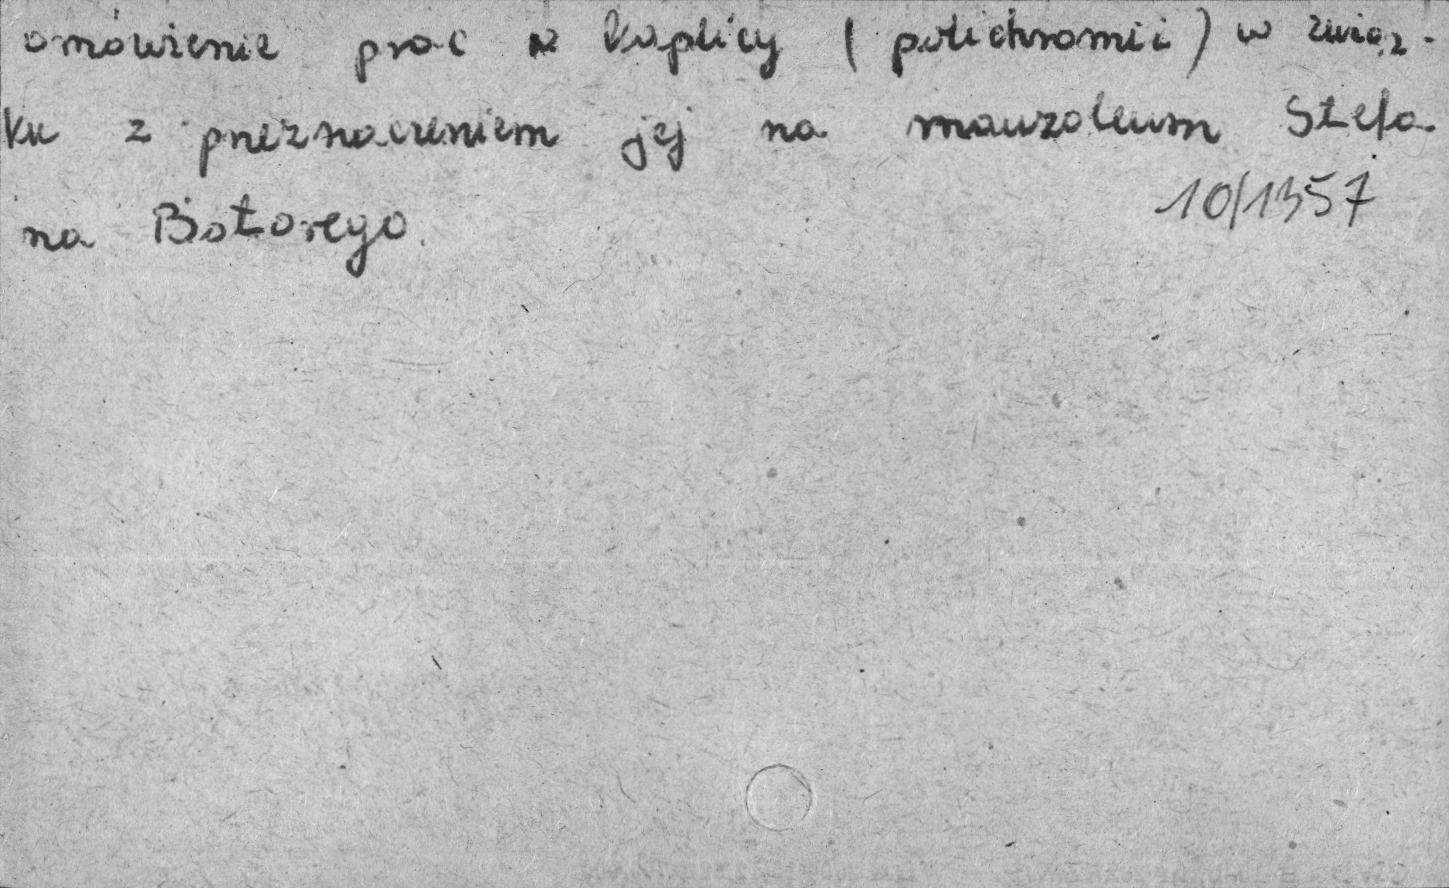 omówienie prac w kaplicy (polichromii) w związ-
ku z przeznaczeniem jej na mauzoleum Stefa-
na Batorego.
10/1357